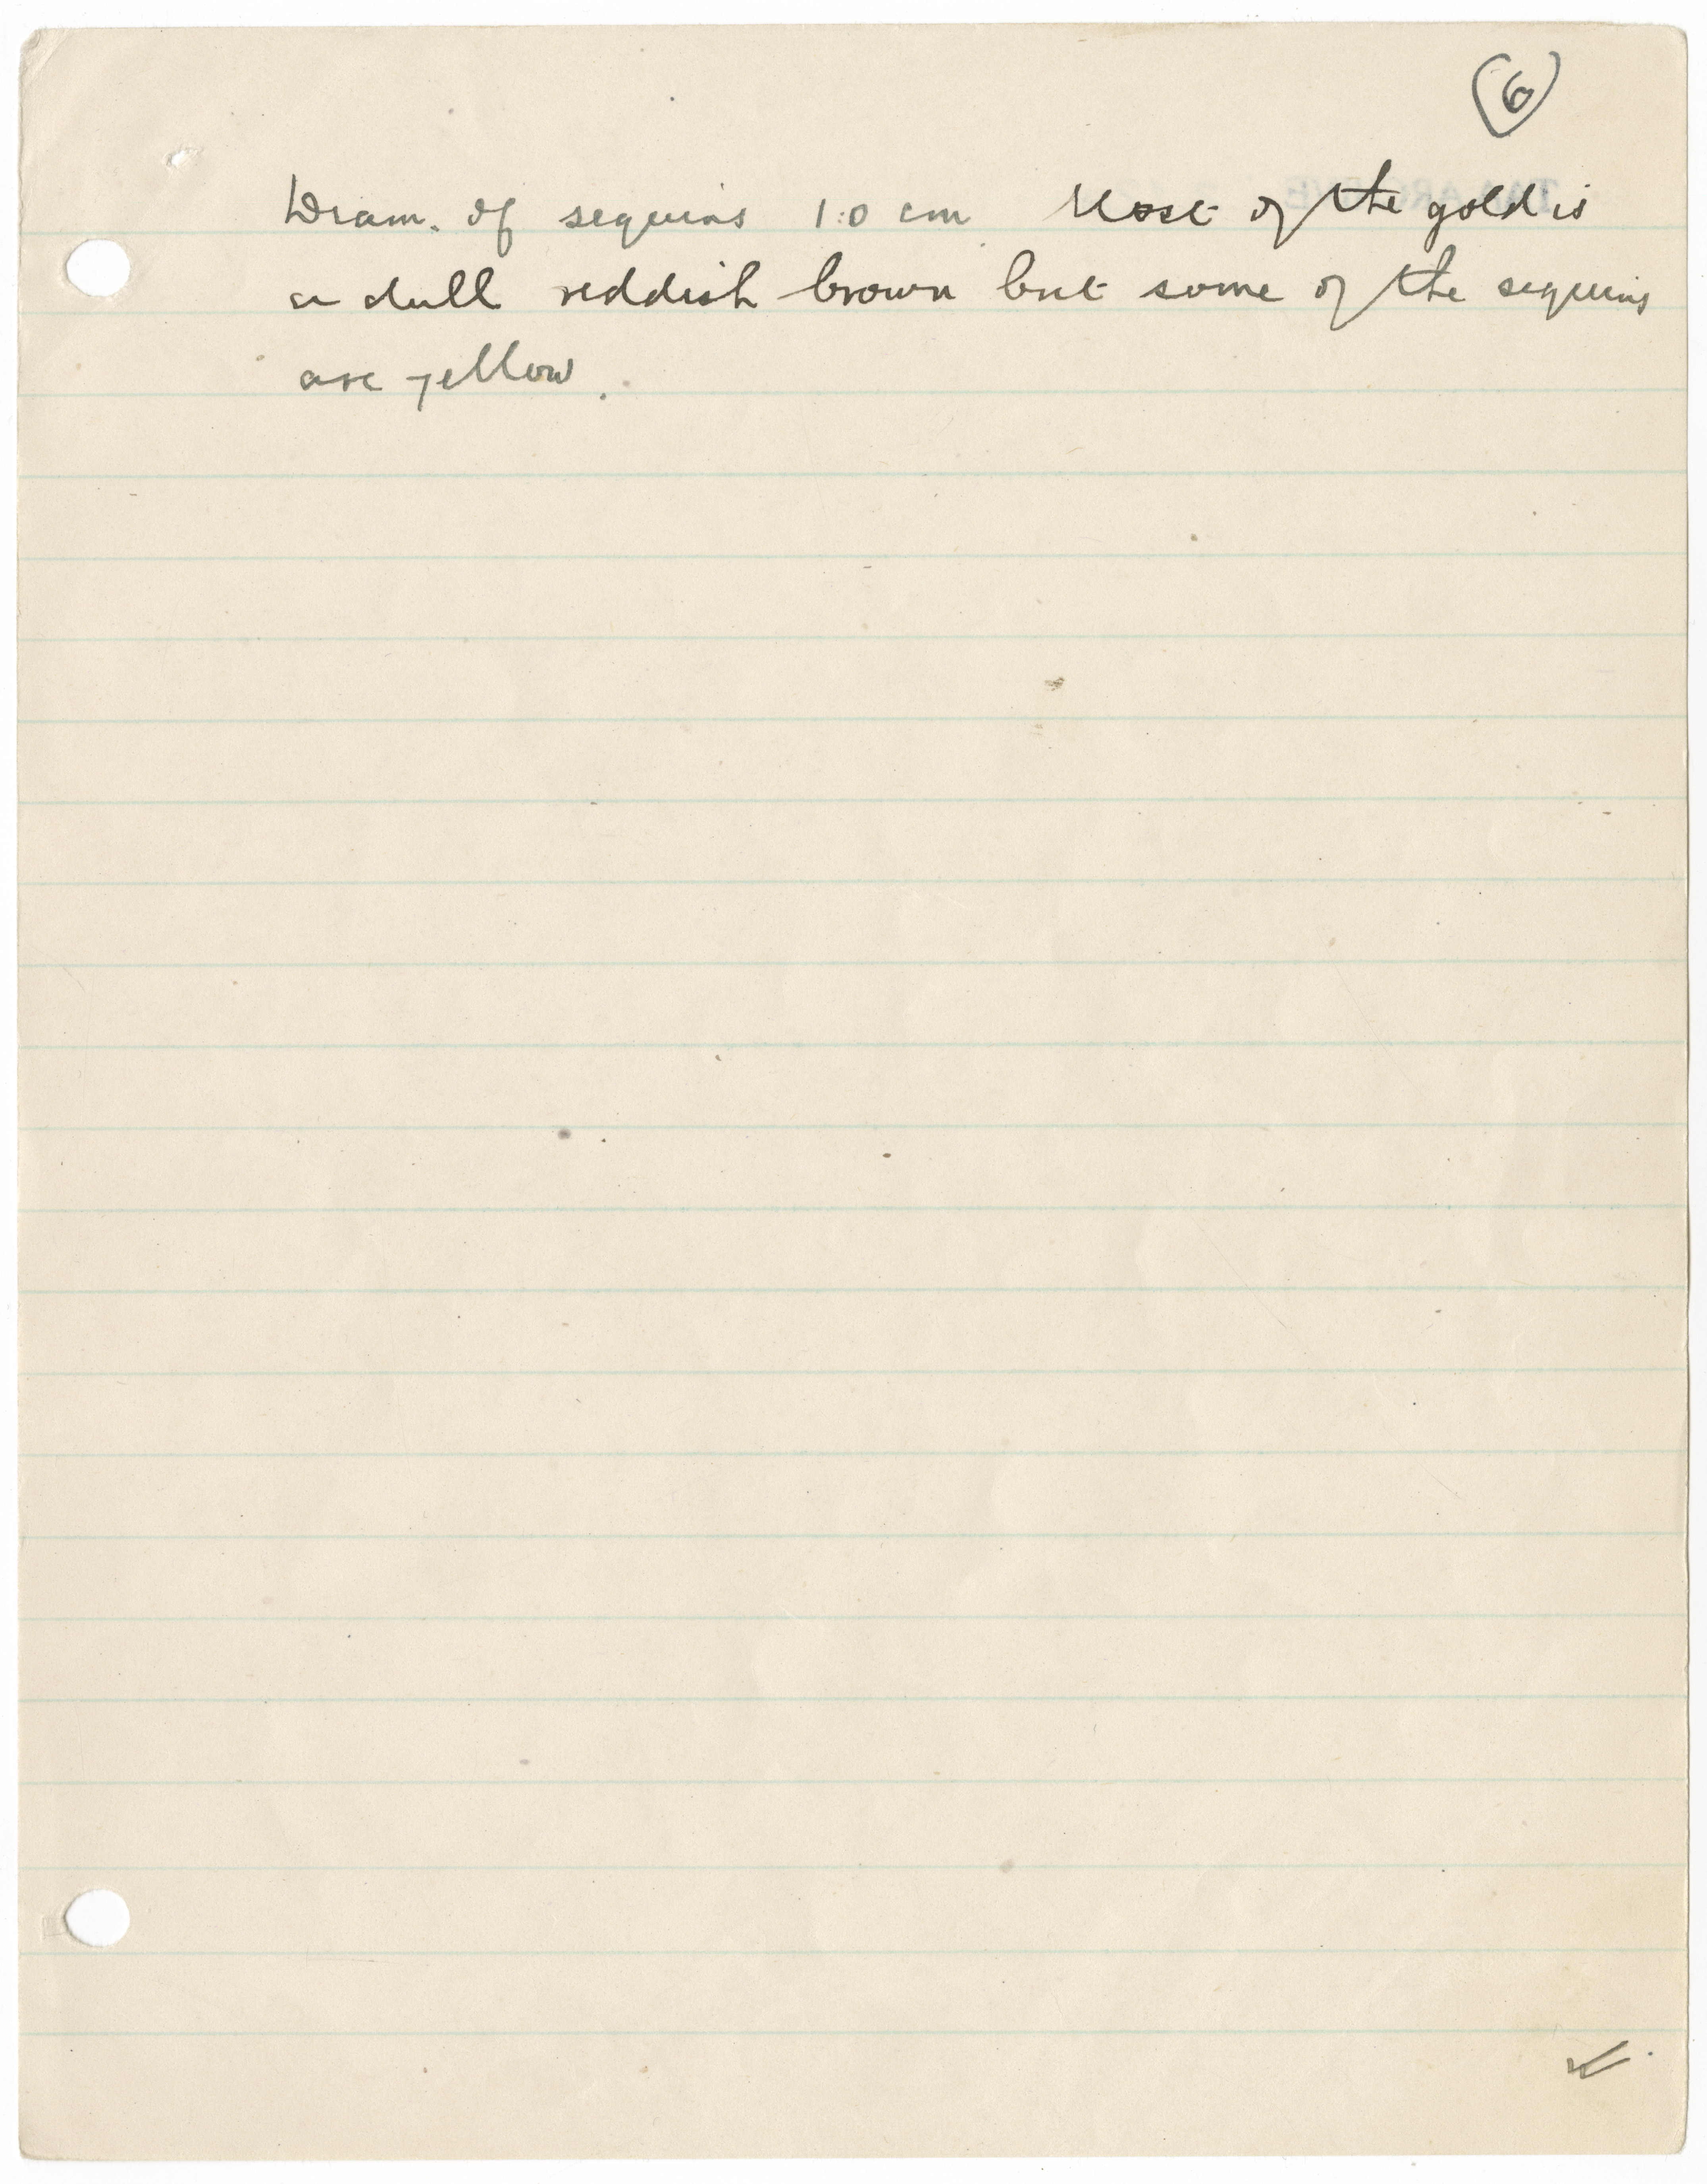 6
Diam. of sequins 1.0 cm Most of the gold is
a dull reddish brown but some of the sequins
are yellow.